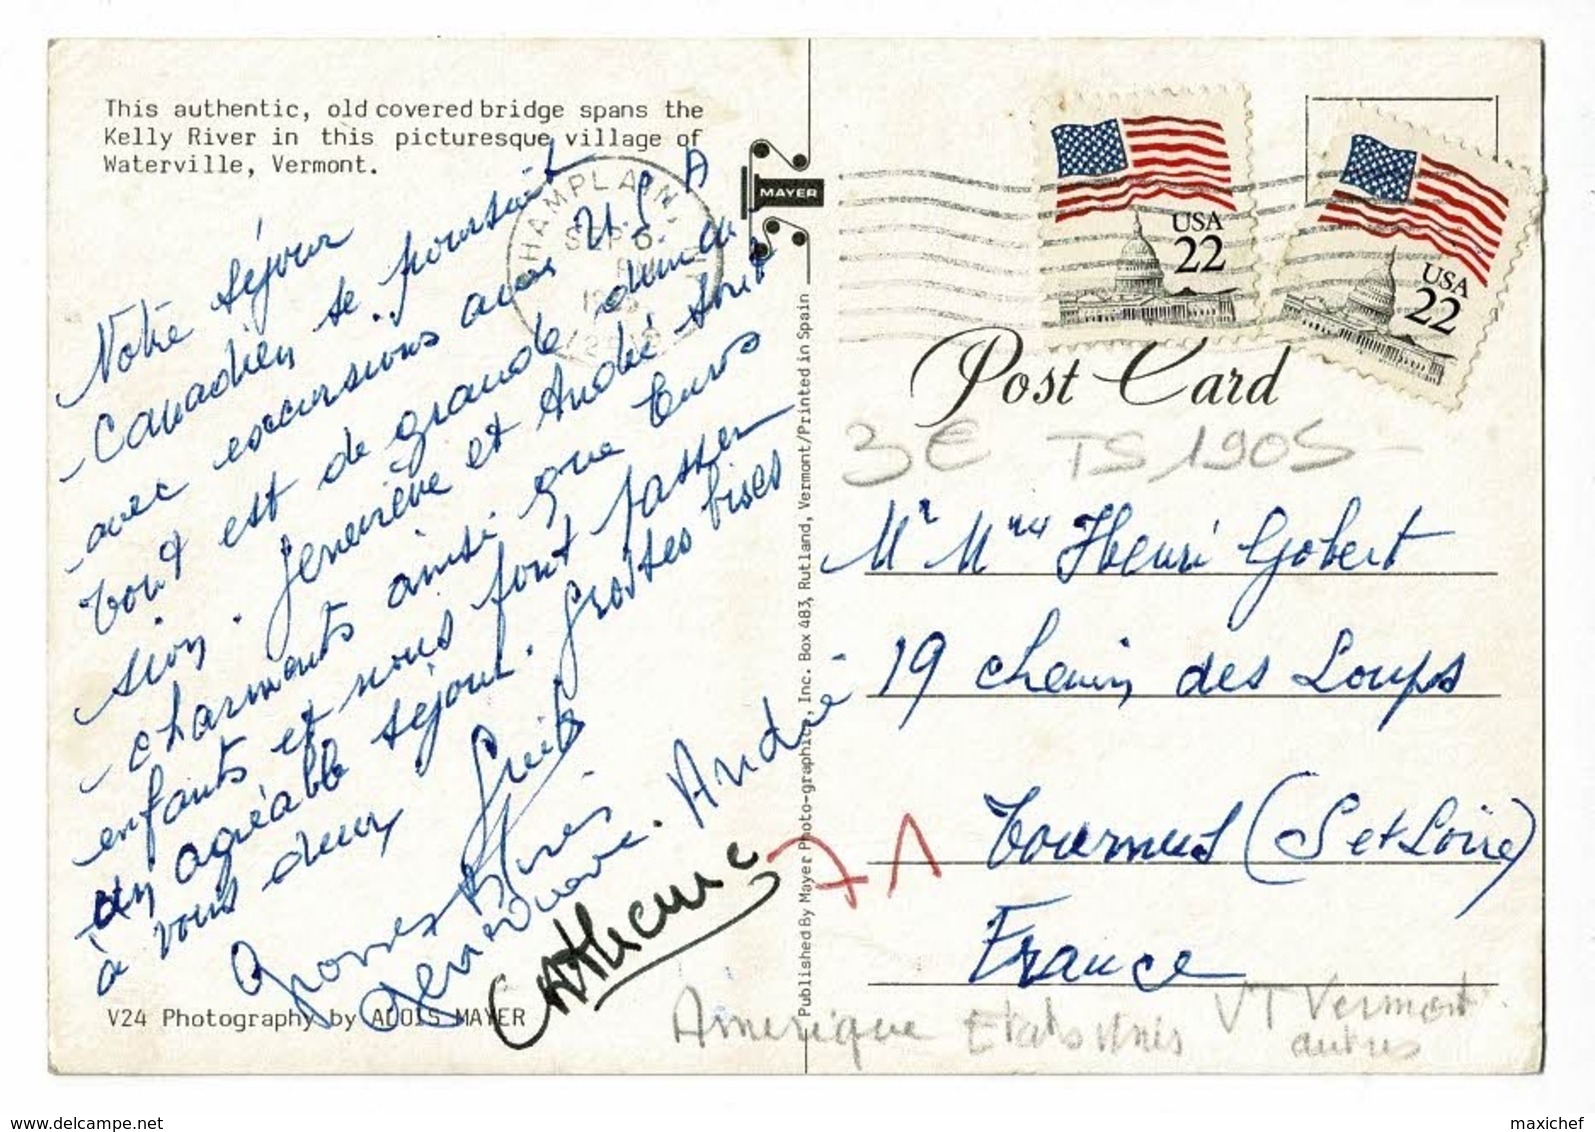 This authentic, old covered bridge spans the
Kelly River in this picturesque village of
Waterville, Vermont.
Notre séjour
Canadien se poursuit
avec excursions aux U.S.A
tout est de grande dimen
sion. Geneviève et André sont
charmants ainsi que leurs
enfants et nous font passer
un agréable séjour. Grosses bises
à vous deux
Grosses Bises
Geneviève. André
CATHerine
V24 Photography by ALOIS MAYER
MAYER
Published By Mayer Photo-graphics, Inc. Box 483, Rutland, Vermont/Printed in Spain
CHAMPLAIN,
SEP 6
USA
22
USA
22
Post Card
3 E TS 1905
Mr Mme Henri Gobert
19 chemin des Loups
Tournus (S et Loire)
France
71
Amerique Etats Unis VT Vermont
autres
www.delcampe.net
maxichef